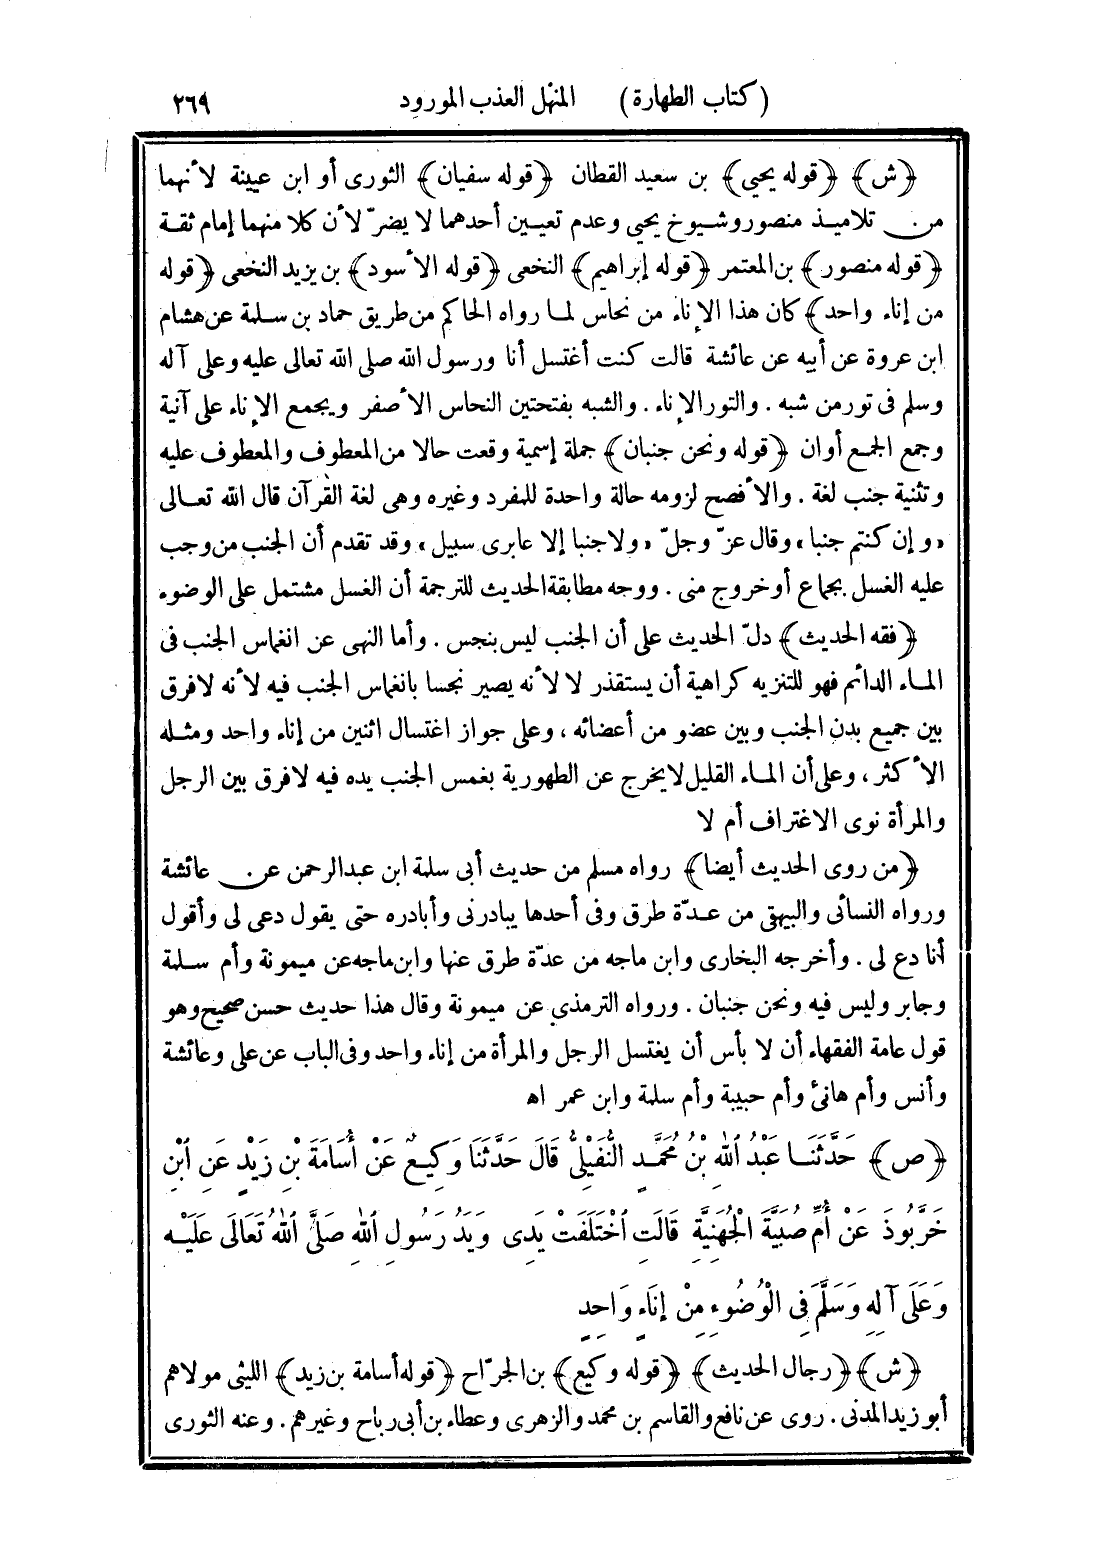 (كتاب الطهارة) المنهل العذب المورود ٢٦٩
﴿ش﴾ ﴿قوله يحيى﴾ بن سعيد القطان ﴿قوله سفيان﴾ الثورى أو ابن عيينة لأنهما
من تلاميذ منصور وشيوخ يحيى وعدم تعيين أحدهما لا يضرّ لأن كلا منهما إمام ثقة
﴿قوله منصور﴾ بن المعتمر ﴿قوله إبراهيم﴾ النخعى ﴿قوله الأسود﴾ بن يزيد النخعى ﴿قوله
من إناء واحد﴾ كان هذا الإناء من نحاس لما رواه الحاكم من طريق حماد بن سلمة عن هشام
ابن عروة عن أبيه عن عائشة قالت كنت أغتسل أنا ورسول الله صلى الله تعالى عليه وعلى آله
وسلم فى تور من شبه . والتور الإناء . والشبه بفتحتين النحاس الأصفر ويجمع الإناء على آنية
وجمع الجمع أوان ﴿قوله ونحن جنبان﴾ جملة إسمية وقعت حالا من المعطوف والمعطوف عليه
وتثنية جنب لغة . والأفصح لزومه حالة واحدة للمفرد وغيره وهى لغة القرآن قال الله تعالى
«وإن كنتم جنبا» وقال عزّ وجلّ «ولا جنبا إلا عابرى سبيل» وقد تقدم أن الجنب من وجب
عليه الغسل بجماع أو خروج منى . ووجه مطابقة الحديث للترجمة أن الغسل مشتمل على الوضوء
﴿فقه الحديث﴾ دلّ الحديث على أن الجنب ليس بنجس . وأما النهى عن انغماس الجنب فى
الماء الدائم فهو للتنزيه كراهية أن يستقذر لا لأنه يصير نجسا بانغماس الجنب فيه لأنه لا فرق
بين جميع بدن الجنب وبين عضو من أعضائه ، وعلى جواز اغتسال اثنين من إناء واحد ومثله
الأكثر ، وعلى أن الماء القليل لا يخرج عن الطهورية بغمس الجنب يده فيه لا فرق بين الرجل
والمرأة نوى الاغتراف أم لا
﴿من روى الحديث أيضا﴾ رواه مسلم من حديث أبى سلمة ابن عبد الرحمن عن عائشة
ورواه النسائى والبيهقى من عدّة طرق وفى أحدها يبادرنى وأبادره حتى يقول دعى لى وأقول
أنا دع لى . وأخرجه البخارى وابن ماجه من عدّة طرق عنها وابن ماجه عن ميمونة وأم سلمة
وجابر وليس فيه ونحن جنبان . ورواه الترمذي عن ميمونة وقال هذا حديث حسن صحيح وهو
قول عامة الفقهاء أن لا بأس أن يغتسل الرجل والمرأة من إناء واحد وفى الباب عن على وعائشة
وأنس وأم هانئ وأم حبيبة وأم سلمة وابن عمر اه
﴿ص﴾ حَدَّثَنَا عَبْدُ اللهِ بْنُ مُحَمَّدٍ النُّفَيْلِىُّ قَالَ حَدَّثَنَا وَكِيعٌ عَنْ أُسَامَةَ بْنِ زَيْدٍ عَنِ ابْنِ
خَرَّبُوذَ عَنْ أُمِّ صُبَيَّةَ الْجُهَنِيَّةِ قَالَتِ اخْتَلَفَتْ يَدِى وَيَدُ رَسُولِ اللهِ صَلَّى اللهُ تَعَالَى عَلَيْهِ
وَعَلَى آلِهِ وَسَلَّمَ فِى الْوُضُوءِ مِنْ إِنَاءٍ وَاحِدٍ
﴿ش﴾ ﴿رجال الحديث﴾ ﴿قوله وكيع﴾ بن الجرّاح ﴿قوله أسامة بن زيد﴾ الليثى مولاهم
أبو زيد المدنى . روى عن نافع والقاسم بن محمد والزهرى وعطاء بن أبى رباح وغيرهم . وعنه الثورى